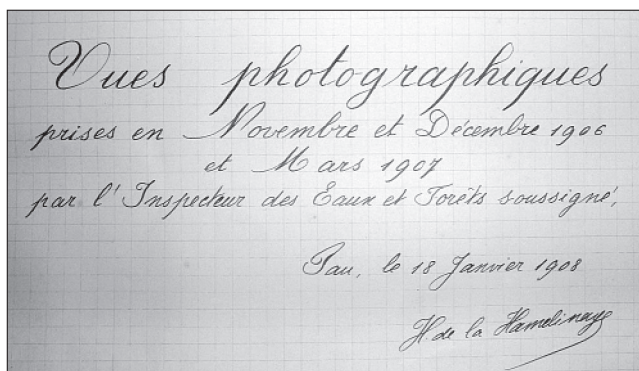 Vues photographiques
prises en Novembre et Décembre 1906
et Mars 1907
par l'Inspecteur des Eaux et Forêts soussigné,
Pau, le 18 Janvier 1908
H. de la Hamelinaye